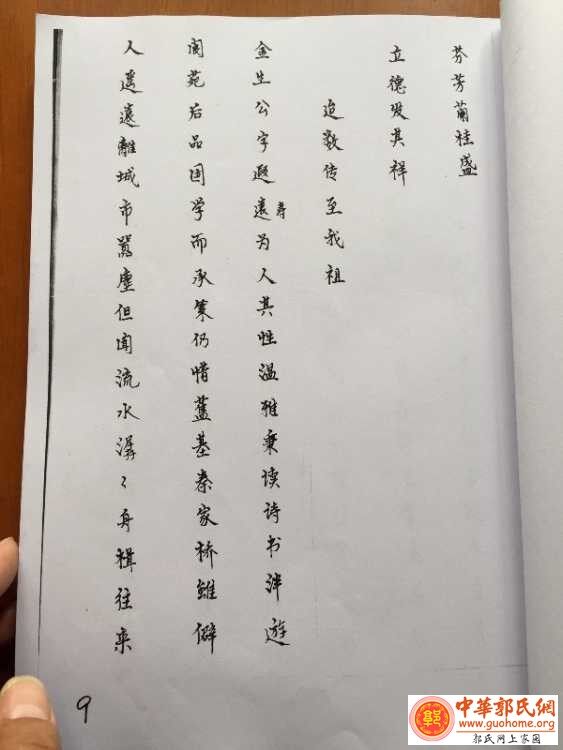 芬芳蘭桂盛
立德发其祥
追数传至我祖
金生公字遐遠寿为人其性温雅秉读诗书泮遊
阆苑后品困学而承策仍惰蓝基秦家桥雖僻
人遥遠離城市嚣塵但闻流水潺々舟楫往来
9
中華郭氏網
www.guohome.org
郭氏网上家园